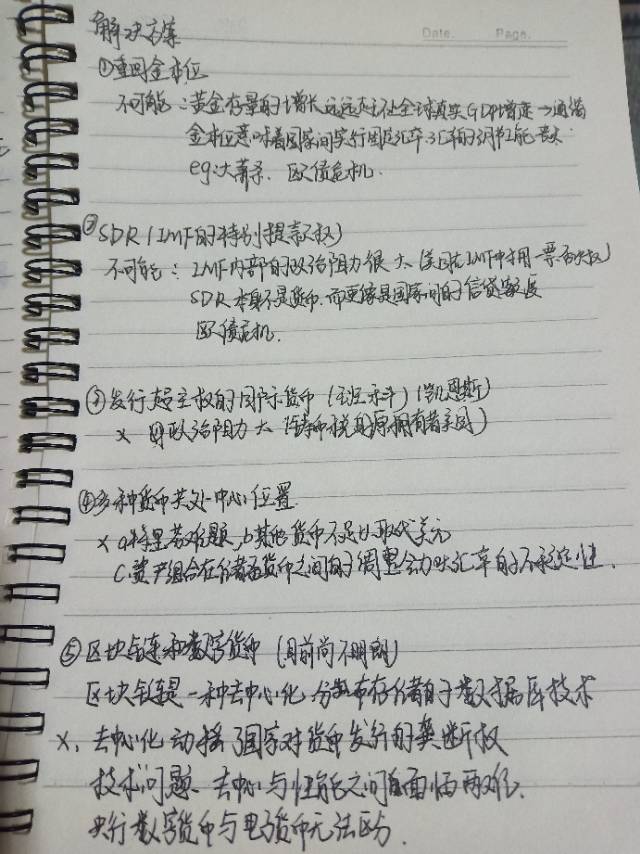 Date. Page.
解决方案
①重回金本位
不可能：黄金存量的增长远远赶不上全球真实GDP增速→通缩
金本位意味着国家间实行固定汇率，汇率的调节功能丧失.
eg：大萧条、欧债危机.
②SDR（IMF的特别提款权）
不可能：IMF内部的政治阻力很大（美国在IMF中拥一票否决权）
SDR本身不是货币，而更像是国家间的信贷
欧债危机.
③发行超主权的国际货币（班科）（凯恩斯）
× 政治阻力大（铸币税的原拥有者美国）
④多种货币共处中心位置.
× a.特里芬难题，b.其他货币不足以取代美元
C.资产组合在储备货币之间的调整会加大汇率的不稳定性.
⑤区块链和数字货币（目前尚不明朗）
区块链是一种去中心化、分布存储的数据库技术
×. 去中心化动摇了国家对货币发行的垄断权
技术问题、去中心与性能之间面临两难.
央行数字货币与电子货币无法区分.